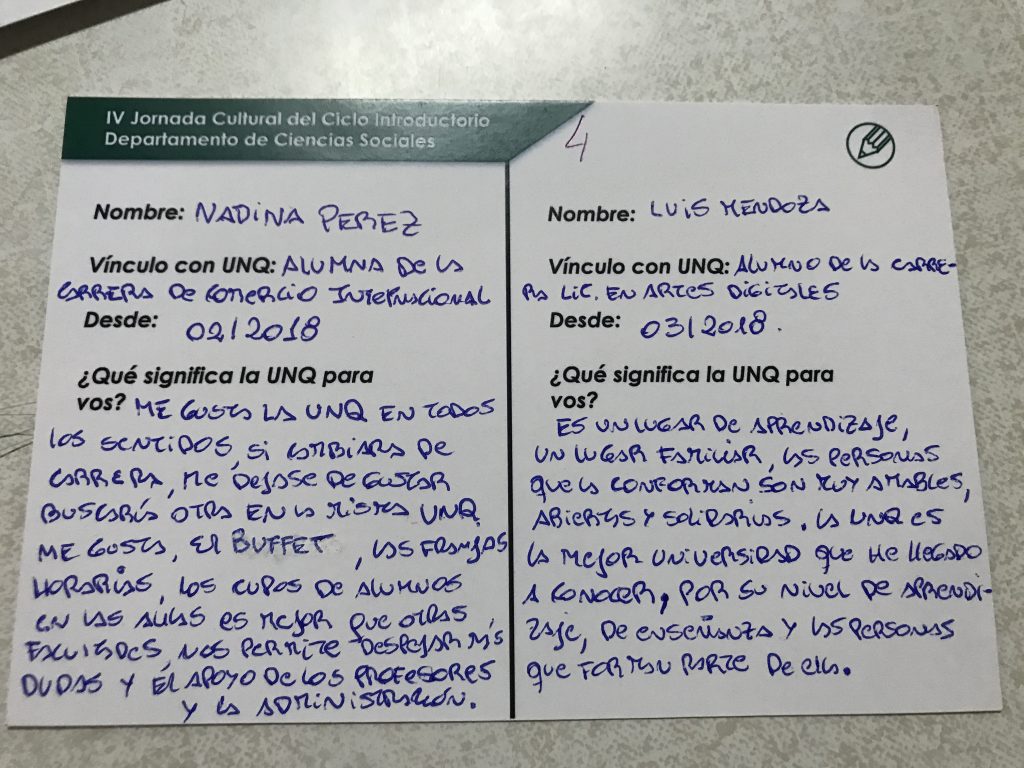 IV Jornada Cultural del Ciclo Introductorio
Departamento de Ciencias Sociales
Nombre: NADINA PEREZ
Vínculo con UNQ: ALUMNA DE LA
CARRERA DE COMERCIO INTERNACIONAL
Desde: 02/2018
¿Qué significa la UNQ para
vos? ME GUSTA LA UNQ EN TODOS
LOS SENTIDOS, SI CAMBIARA DE
CARRERA, ME DEJASE DE GUSTAR
BUSCARÍA OTRA EN LA MISMA UNQ.
ME GUSTA, El BUFFET, LAS FRANJAS
HORARIAS, LOS CUPOS DE ALUMNOS
EN LAS AULAS ES MEJOR QUE OTRAS
FACULTADES, NOS PERMITE DESPEJAR MÁS
DUDAS Y EL APOYO DE LOS PROFESORES
Y LA ADMINISTRACIÓN.
4
Nombre: LUIS MENDOZA
Vínculo con UNQ: ALUMNO DE LA CARRE-
RA LIC. EN ARTES DIGITALES
Desde: 03/2018.
¿Qué significa la UNQ para
vos?
ES UN LUGAR DE APRENDIZAJE,
UN LUGAR FAMILIAR, LAS PERSONAS
QUE LA CONFORMAN SON MUY AMABLES,
ABIERTAS Y SOLIDARIAS. LA UNQ ES
LA MEJOR UNIVERSIDAD QUE HE LLEGADO
A CONOCER, POR SU NIVEL DE APRENDI-
ZAJE, DE ENSEÑANZA Y LAS PERSONAS
QUE FORMAN PARTE DE ELLA.